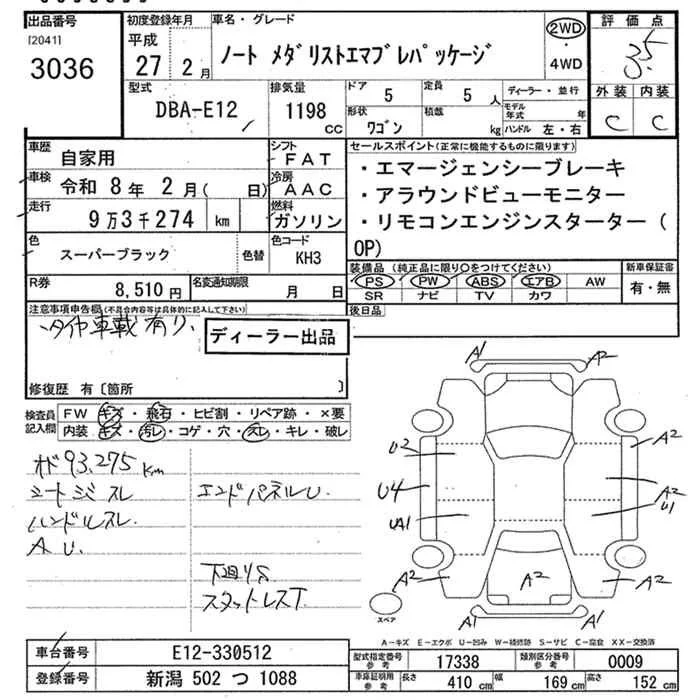 出品番号
[2041]
3036
初度登録年月
平成
27 2月
車名・グレード
ノート メダリストエマブレパッケージ
2WD
・
4WD
評価点
3.5
外装 内装
C C
型式
DBA-E12
排気量
1198
CC
ドア
5
定員
5 人
ディーラー・並行
形状
ワゴン
積載
kg
モデル
年式 年
ハンドル 左・右
車歴
自家用
シフト
FAT
車検
令和 8年 2月( 日)
冷房
AAC
走行
9万3千274 km
燃料
ガソリン
色
スーパーブラック
色替
色コード
KH3
R券
8,510円
名変通知期限
月 日
セールスポイント(正常に機能するものに限ります)
・エマージェンシーブレーキ
・アラウンドビューモニター
・リモコンエンジンスターター(
OP)
装備品(純正品に限り〇をつけてください)
PS PW ABS エアB AW
SR ナビ TV カワ
新車保証書
有・無
後日品
注意事項申告欄(不具合内容等は具体的に記入して下さい)
タイヤ車載有り、
ディーラー出品
修復歴 有〔箇所 〕
検査員
記入欄
FW キズ・飛石・ヒビ割・リペア跡・×要
内装 キズ・汚レ・コゲ・穴・スレ・キレ・破レ
メド93,275km
シートシミスレ
ハンドルスレ
A U.
エンドパネルU.
下廻りS
スタットレスT
A1 A2
U2 A2
U4 A2
UA1 U1
A2 A2 A2
A1 A1
スペア
A-キズ E-エクボ U-凹み W-補修跡 S-サビ C-腐食 XX-交換済
車台番号
E12-330512
登録番号
新潟 502 つ 1088
型式指定番号
参考
17338
類別区分番号
参考
0009
車庫証明用
参考
長さ
410 cm
幅
169 cm
高さ
152 cm